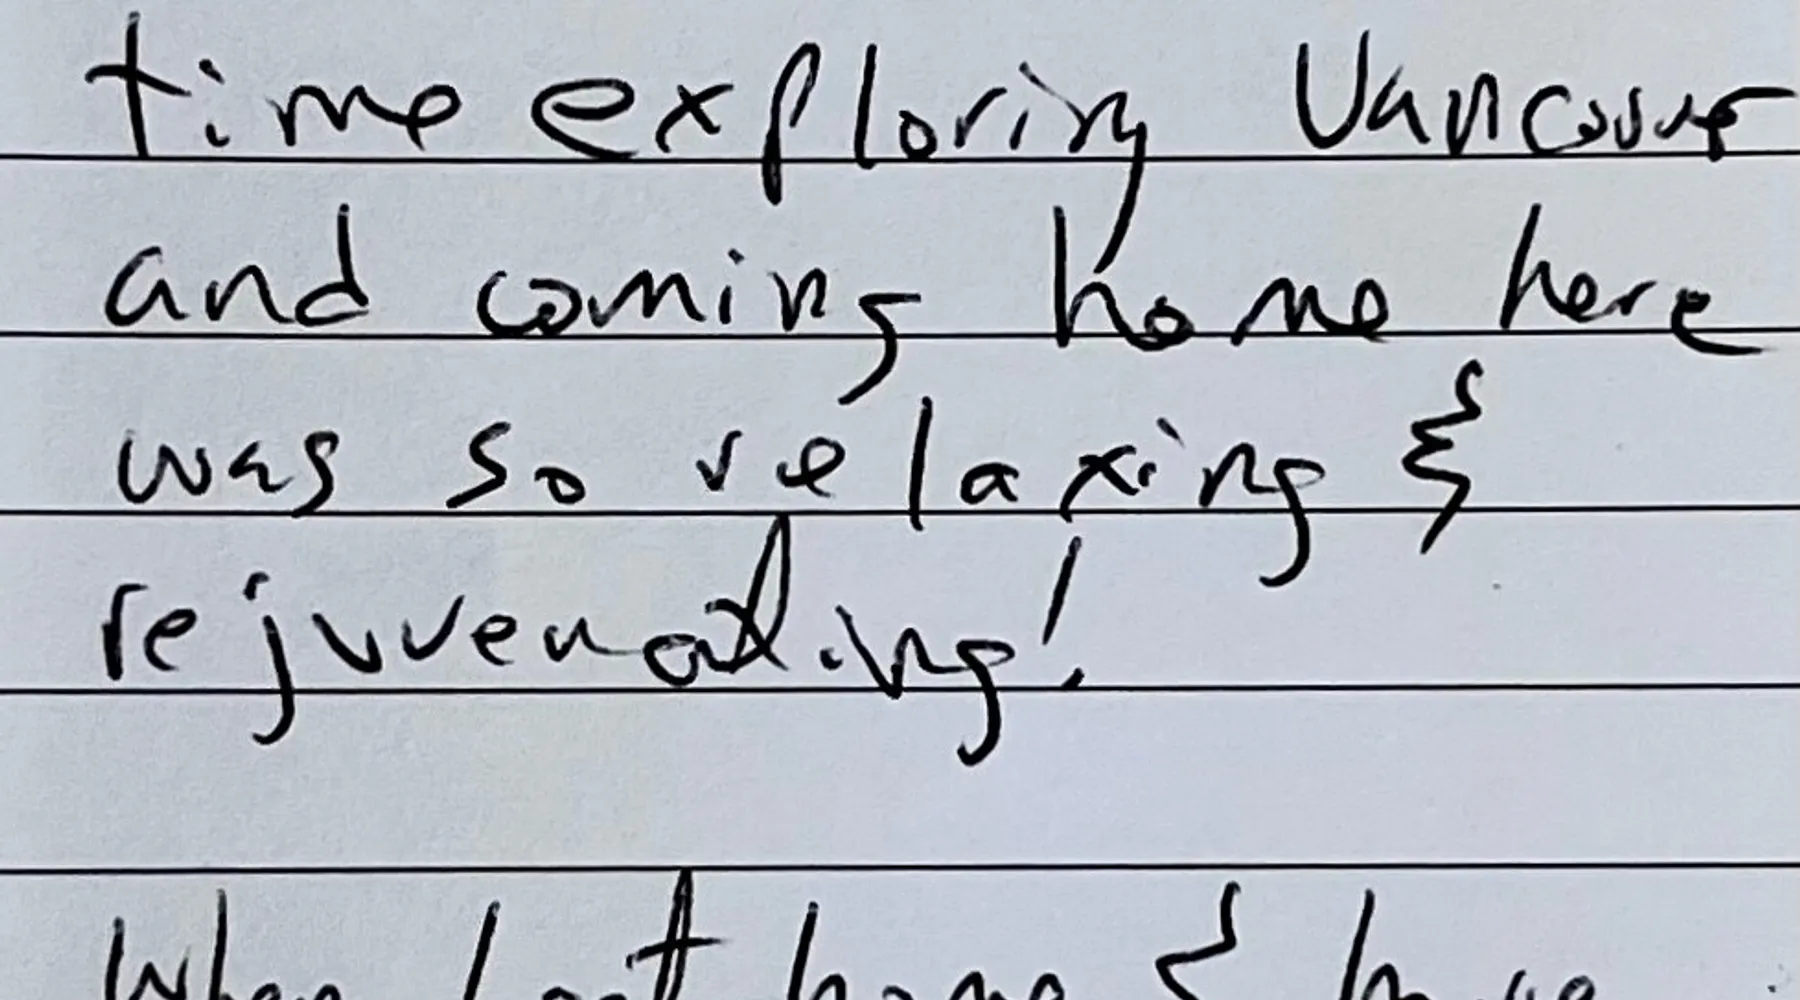 time exploring Vancouver
and coming home here
was so relaxing &
rejuvenating!
When I get home & have